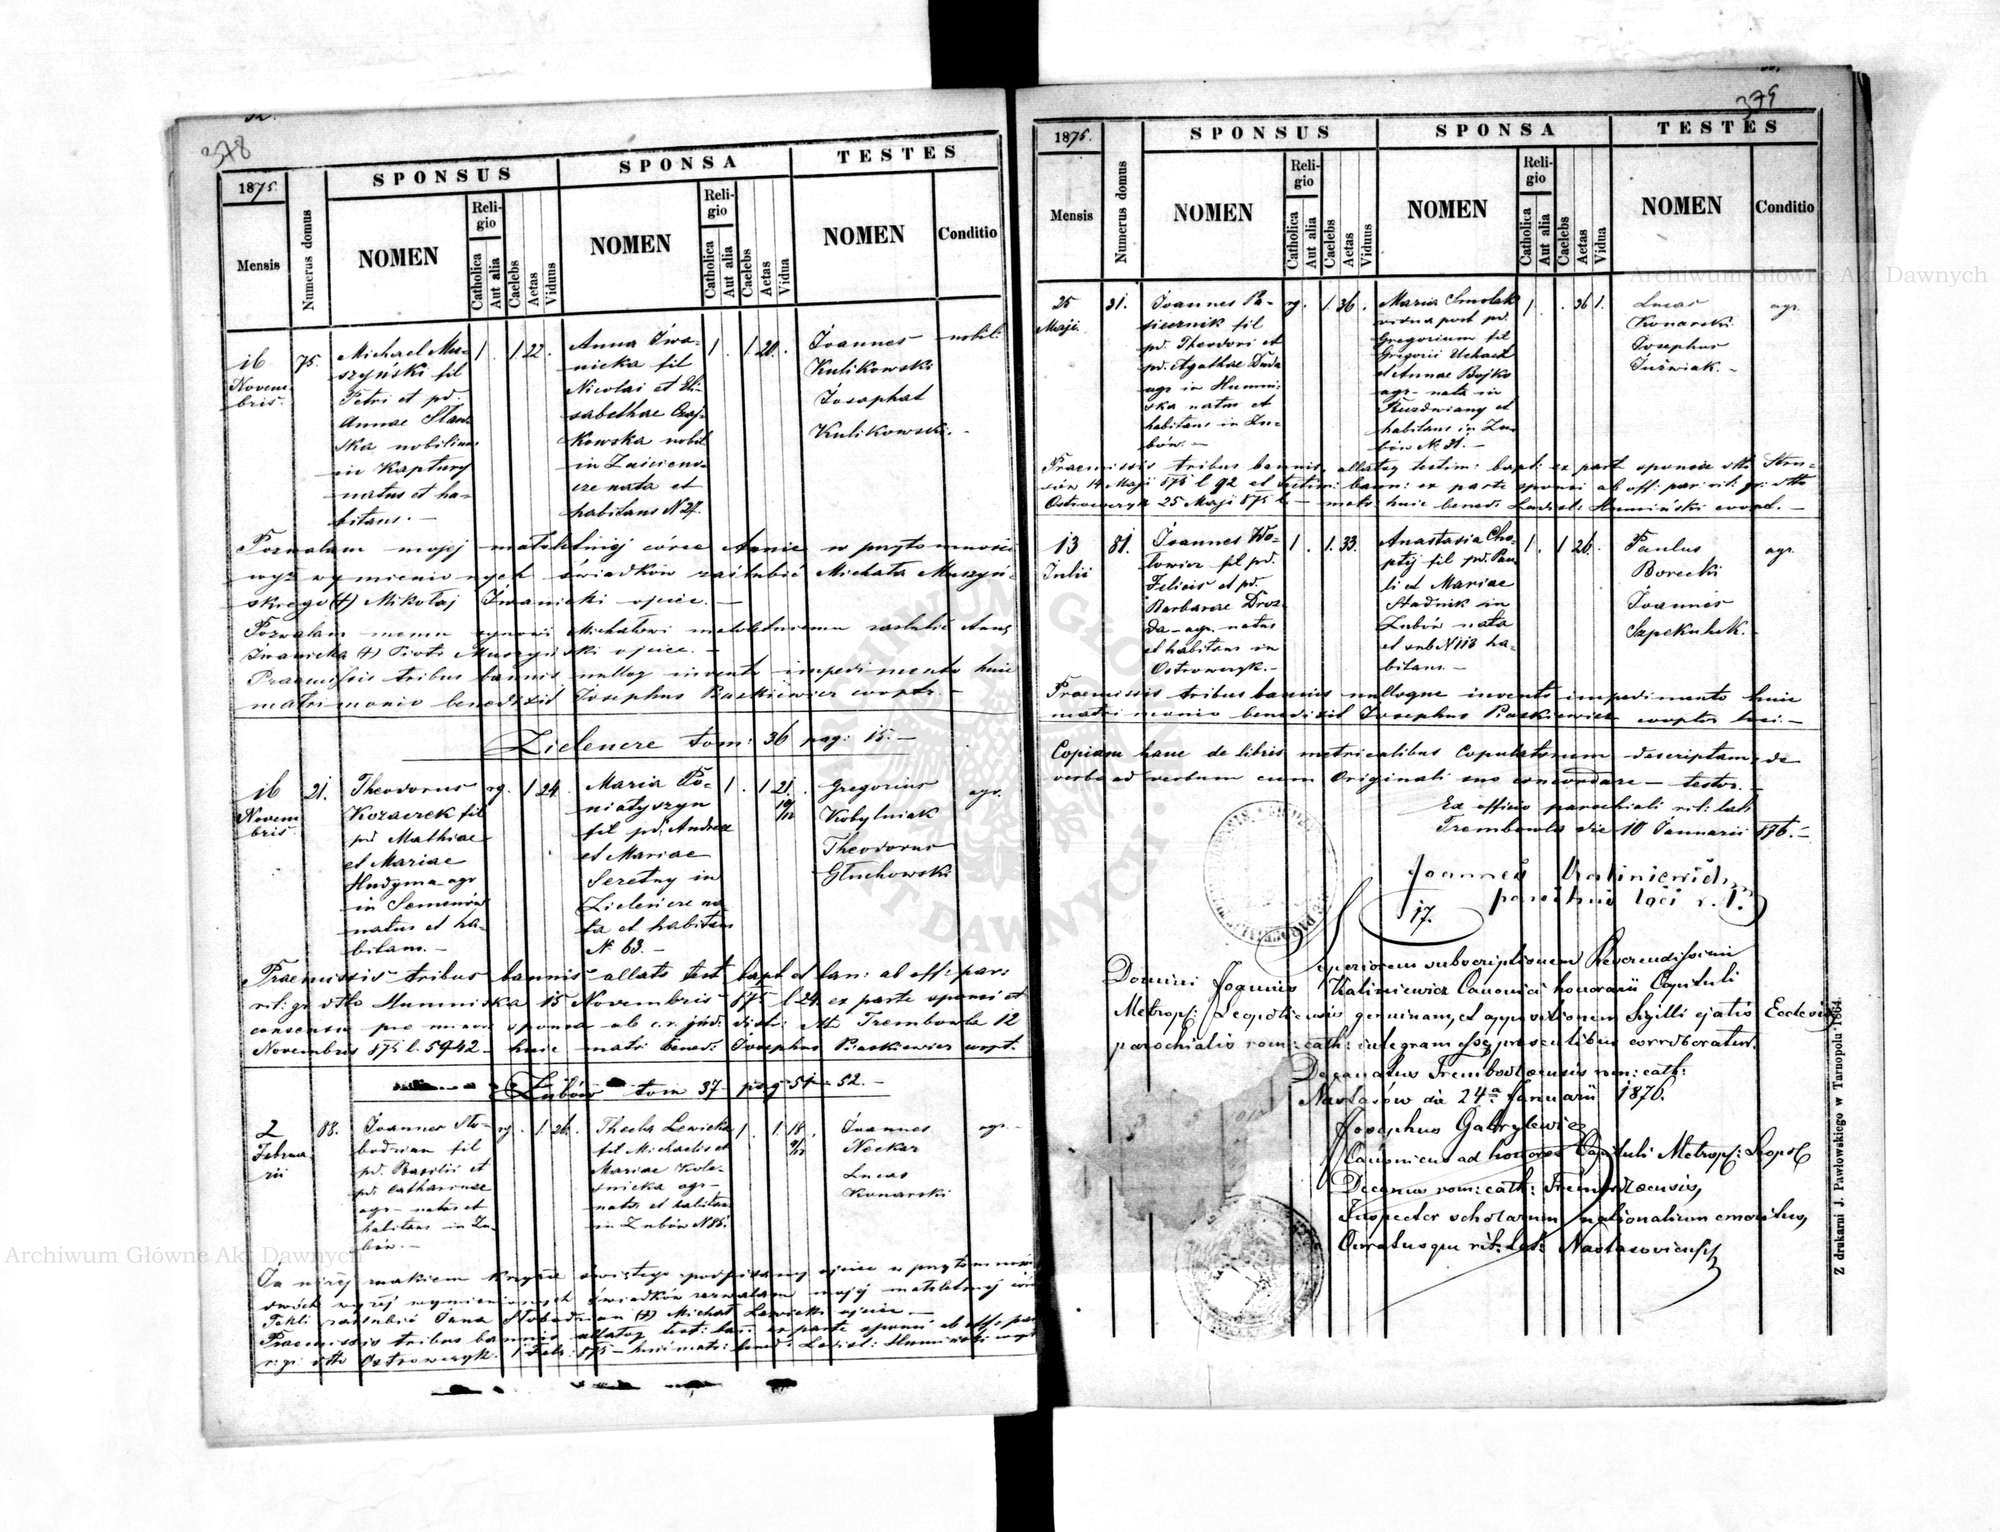 378
1875.
Mensis
Numerus domus
SPONSUS
NOMEN
Religio
Catholica
Aut alia
Caelebs
Aetas
Viduus
SPONSA
NOMEN
Religio
Catholica
Aut alia
Caelebs
Aetas
Vidua
TESTES
NOMEN
Conditio
16
Novem-
bris.
75.
Michael Mu-
szyński fil
Petri et pd.
Annae Slaw-
ska nobilium
in Kaptury
natus et ha-
bitans. —
1
1. 22.
Anna Iwa-
nicka fil
Nicolai et Eli-
sabethae Czaj-
kowska nobil
in
nata et
habitans N 27.
1
1. 20.
Ioannes
Kulikowski
Iosaphat
Kulikowski. —
nobil:
Pozwalam mojej małoletniej córce Annie w przytomności
wyż wymienionych świadków zaślubić Michała Muszyń-
skiego (+) Mikołaj Iwanicki ojciec. —
Pozwalam memu synowi Michałowi małoletniemu zaślubić Annę
Iwanicką (+) Piotr Muszyński ojciec. —
Praemissis tribus bannis nulloq invento impedimento huic
matrimonio benedixit Josephus Piaskiewicz cooptr. —
Zieleńcze tom: 36 pag: 15. —
16
Novem
bris.
21.
Theodorus
Kozaczek fil
pd Mathiae
et Mariae
Hudyma agr
in Semenów
natus et ha-
bitans. —
rg.
1 24.
Maria Po-
niatyszyn
fil pd. Andreae
et Mariae
Seretny in
Zieleńcze na-
ta et habitans
N. 63. —
1
1 21.
10/12
Gregorius
Kobylniak
Theodorus
Głuchowski
agr.
Praemissis tribus bannis allatis test bapt et ban: ab off: par:
rit: gr dtto Humniska 15 Novembris 875 l 24. ex parte sponsi et
consensu pro minor sponsa ab c. r. jud: distr: dtto Trembowla 12
Novembris 875 l. 5942 — huic matri bened: Josephus Piaskiewicz coopt.
Zubów tom 37 pag 51 — 52. —
2
Februa-
rii
88.
Ioannes Slo-
bodzian fil
pd. Basilii et
pd. Catharinae
agr — natus et
habitans in Zu-
bów. —
rg.
1. 26.
Thecla Lewicka
fil Michaelis et
Mariae Kole-
snicka agr —
nata et habitans
in Zubów N 86.
1
1. 18.
9/12
Ioannes
Neckar
Lucas
Konarski
agr. —
Ja niżej znakiem krzyża świętego podpisany ojciec w przytomności
dwóch wyżej wymienionych świadków zezwalam mojej małoletniej córce
Tekli zaślubić Jana Słobodzian (+) Michał Lewicki ojciec —
Praemissis tribus bannis allatoq test: ban: ex parte sponsi ab off: par:
r: gr: dtto Ostrowczyk. 1 Febr: 875 — huic matr: bened: Ladisl: Humiński coopt
379
1875.
Mensis
Numerus domus
SPONSUS
NOMEN
Religio
Catholica
Aut alia
Caelebs
Aetas
Viduus
SPONSA
NOMEN
Religio
Catholica
Aut alia
Caelebs
Aetas
Vidua
TESTES
NOMEN
Conditio
25
Maji
31.
Ioannes Pa-
siecznik fil
pd. Theodori et
pd. Agathae Duda
agr in Humni-
ska natus et
habitans in Zu-
bów. —
rg.
1. 36.
Maria Smolak
vidua post pd.
Gregorium fil
Gregorii
et Annae Bojko
agr — nata in
et
habitans in Zu-
bów N. 31. —
1
36 1.
Lucas
Konarski
Iosephus
Juświak. —
agr.
Praemissis tribus bannis, allatoq testim: bapt: ex parte sponsae dtto Strus-
sów 14 Maji 875 l 92 et testim: bann: ex parte sponsi ab off: par: rit: gr: dtto
Ostrowczyk 25 Maji 875 — matr: huic bened: Ladisl: Humiński coopt. —
13
Julii
81.
Ioannes Wo-
towicz fil pd.
Felicis et pd.
Barbarae Droz-
da — agr. natus
et habitans in
Ostrowczyk. —
1
1. 33.
Anastasia Cho-
ptij fil pd. Pau-
li et Mariae
Stadnik in
Zubów nata
et sub N 113 ha-
bitans. —
1
1 26.
Paulus
Borecki
Ioannes
Szpekuluk. —
agr.
Praemissis tribus bannis nulloque invento impedimento huic
matrimonio benedixit Josephus Piaskiewicz cooptor loci —
Copiam hanc de libris metricalibus Copulatorum descriptam de
verbo ad verbum cum Originali suo concordare — testor. —
Ex officio parochiali rit: lat:
Trembowla die 10 Januarii 876. —
Joannes Kaliniewicz mp
parochus loci r. l.
17.
Superiorem subscriptionem Reverendissimi
Domini Joannis Kaliniewicz Canonici honorarii Capituli
Metrop: Leopoliensis genuinam, et appositionem Sigilli ejatis Ecclesiae
parochialis rom: cath: integram esse, praesentibus corroboratur.
Decanatus Trembovlaensis rom: cath:
Nastasów die 24ª Januarii 1876.
Josephus Gabrylewicz
Canonicus ad honores Capituli Metrop: Leopol
Decanus rom: cath: Trembovlaensis,
Inspector scholarum nationalium emeritus,
Curatusque rit: lat: Nastasoviensis
Z drukarni J. Pawłowskiego w Tarnopolu 1864.
Archiwum Główne Akt Dawnych
Archiwum Główne Akt Dawnych
ARCHIWUM GŁÓWNE AKT DAWNYCH